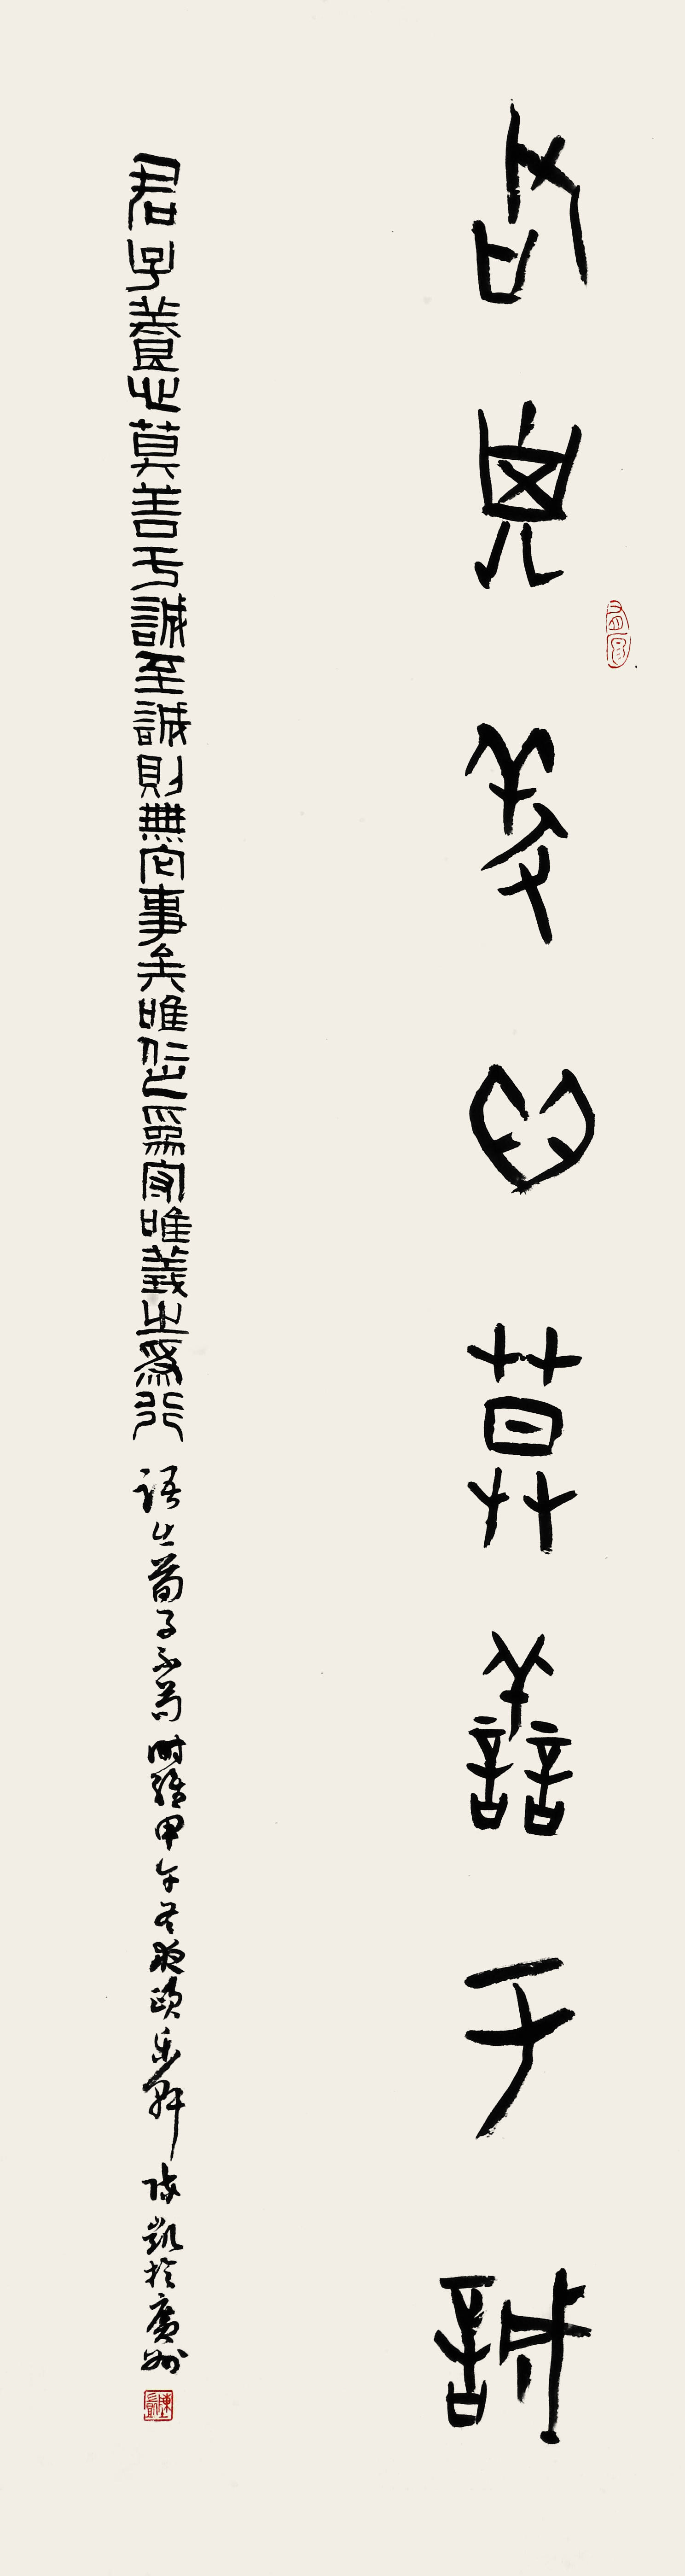 君子养心莫善于誠
君子養心莫善于誠至誠則無它事矣唯仁之爲守唯義之爲行 語出荀子不苟 時維甲午冬夜頤樂軒 陳凱於廣州